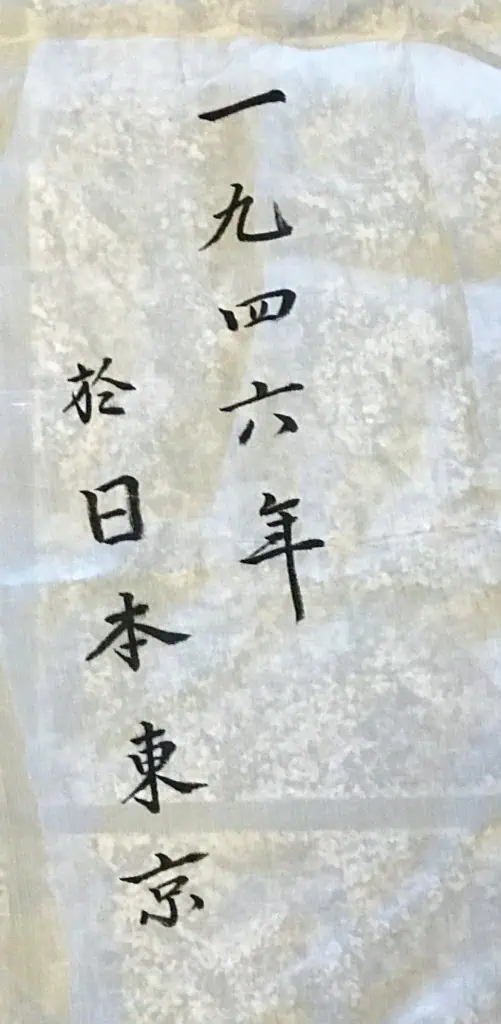 一九四六年
於日本東京